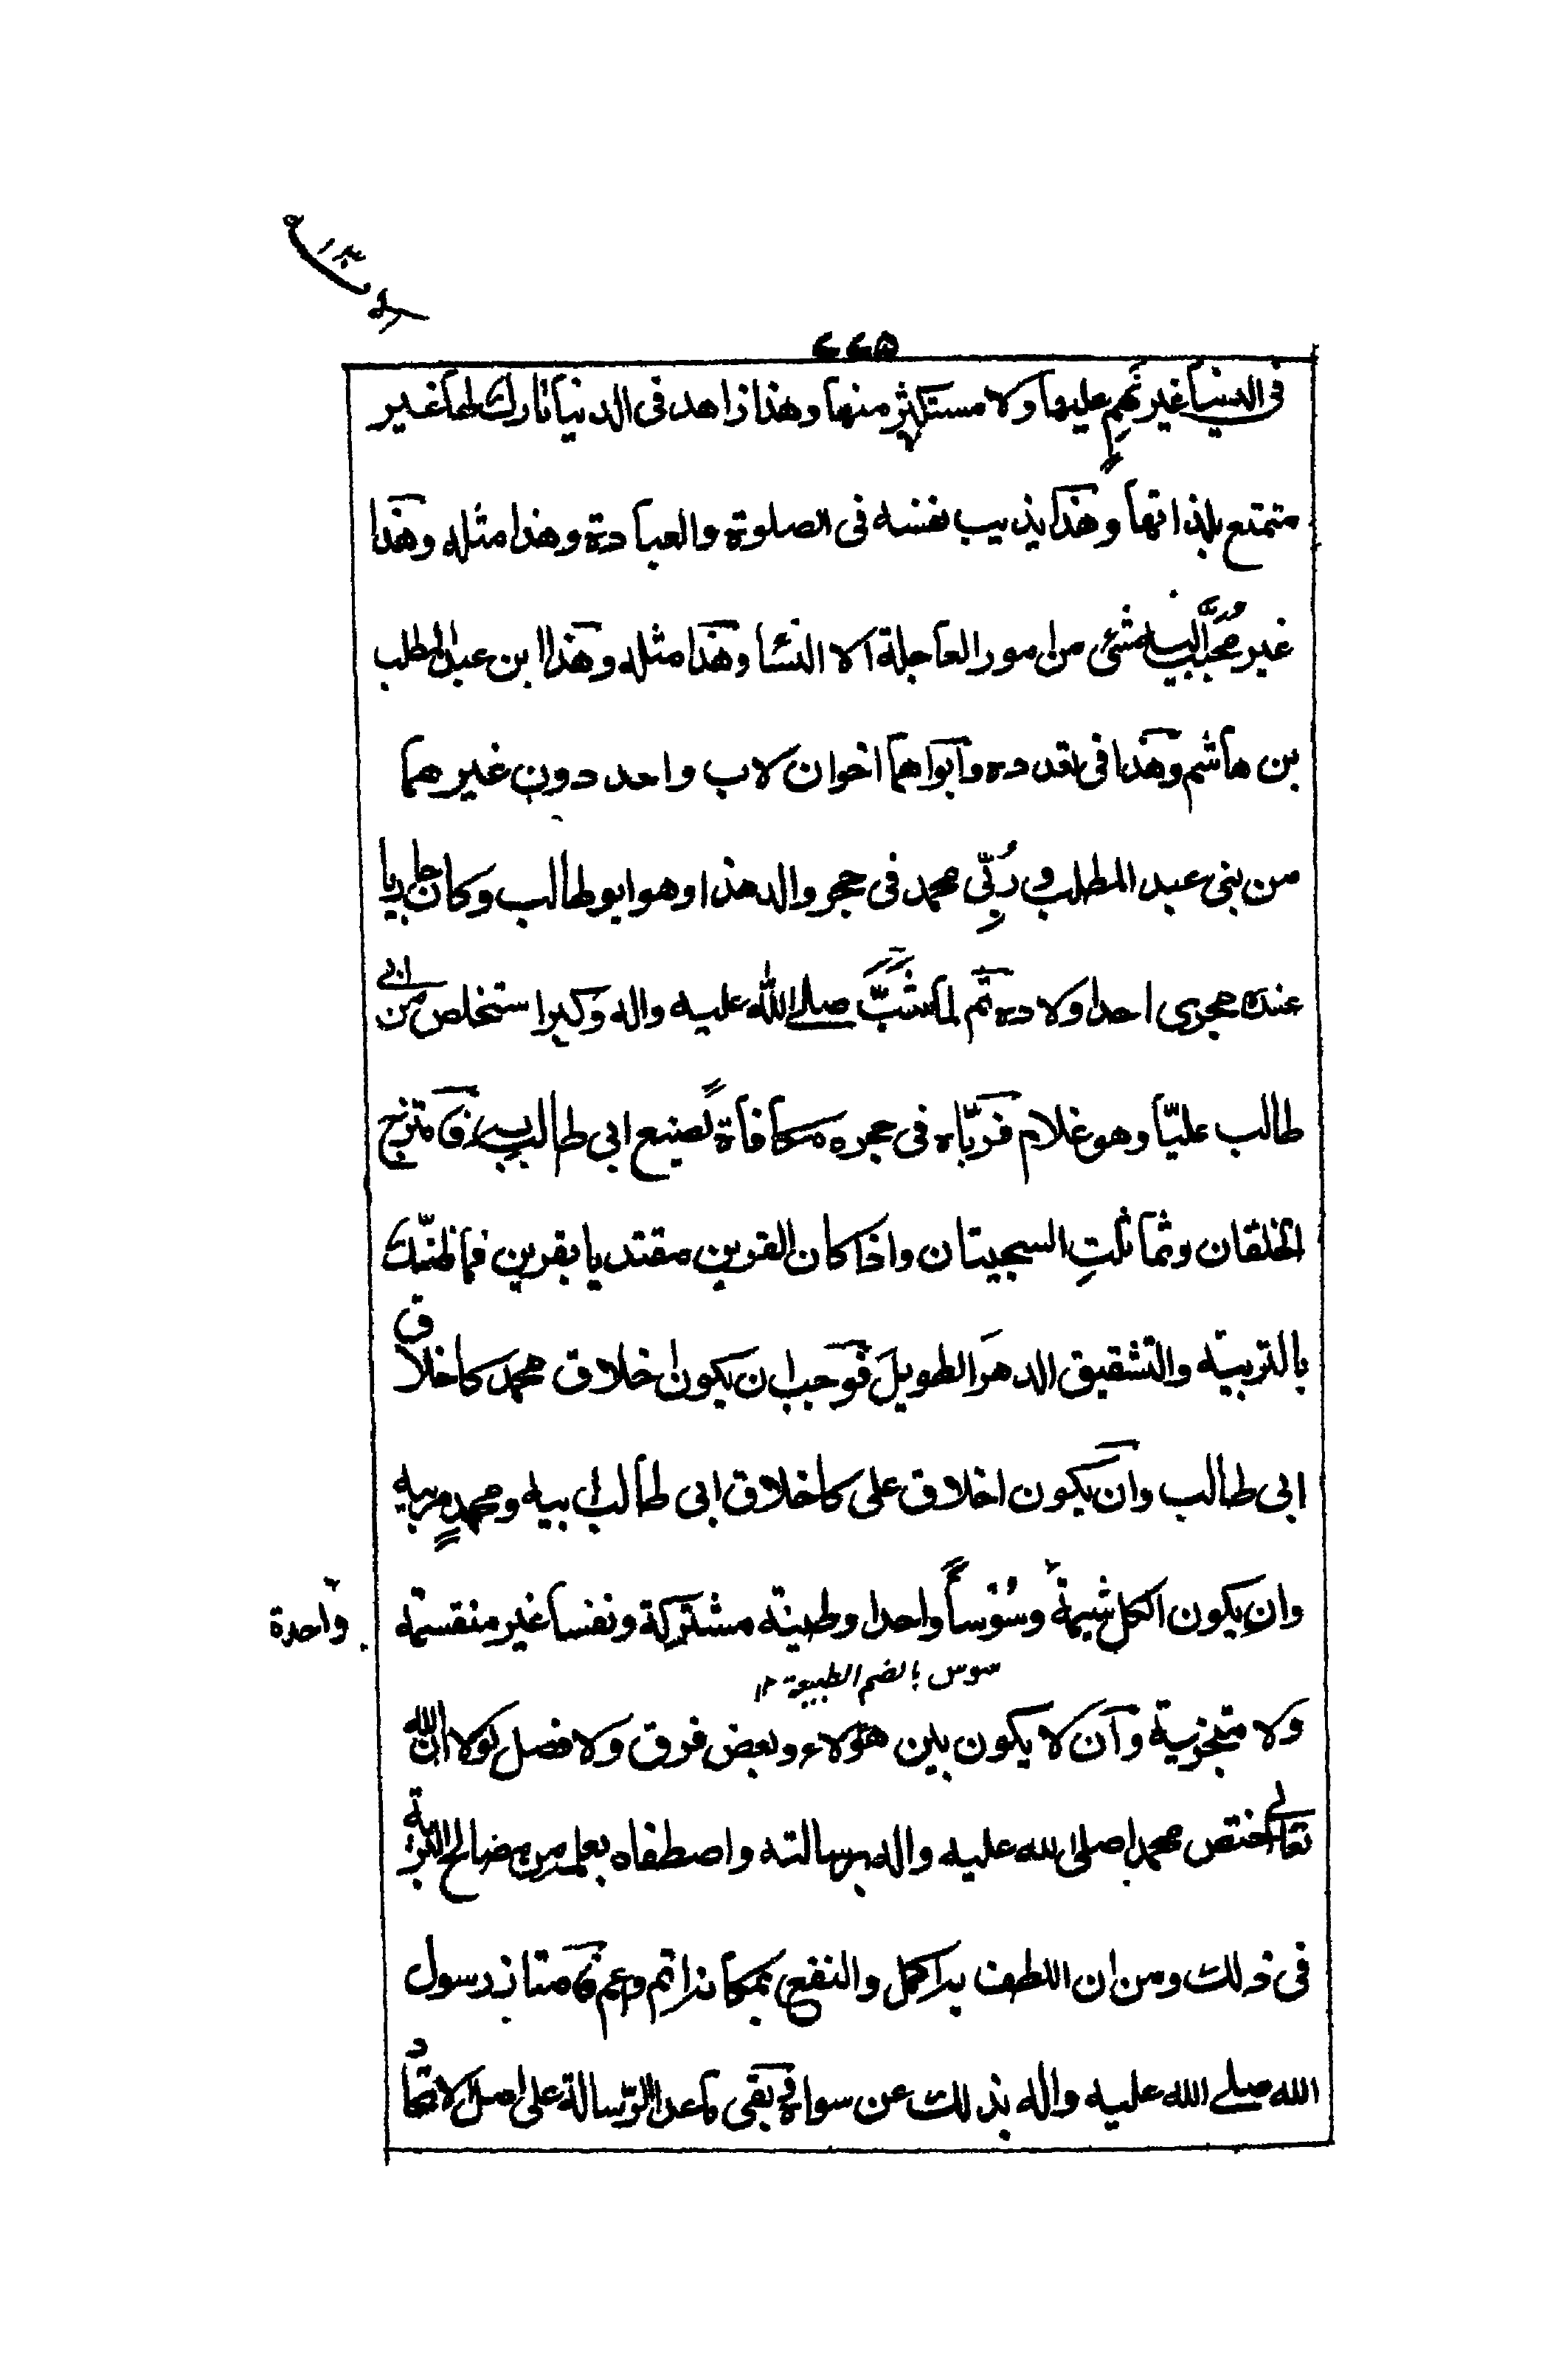 ٢٢٥
في الدنيا غير نَهِمٍ عليها ولا مستكثر منها وهذا زاهد في الدنيا تارك لها غير
متمتع بلذاتها وهذا يذيب نفسه في الصلوة والعبادة وهذا مثله وهذا
غير مُحَبَّب اليه شئ من امور العاجلة الا النسَا وهذا مثله وهذا ابن عبد المطلب
بن هاشم وهذا في قعدده وابواهما اخوان لاب واحد دون غيرهما
من بني عبد المطلب و رُبِّي محمد في حجر والد هذا وهو ابو طالب وكان جاريا
عنده مجرى احد اولاده ثم لما شبّ صلے الله عليه واله وكبر استخلص من ابي
طالب عليّا وهو غلام فربّاه في حجره مكافاة لصنيع ابي طالب به فامتزج
الخلقان وتماثلتِ السجيتان واذا كان القرين مقتديا بقرين فما ظنّك
بالتربية والتشقيق الدهرَ الطويلَ فوجب ان يكون اخلاق محمد كاخلاق
ابي طالب وان يكون اخلاق علي كاخلاق ابي طالب ابيه ومحمدٍ مربيه
وان يكون الكل شيمةً وسُوْساً واحدا وطينته مشتركة ونفسا غير منقسمة
واحدة
سوس بالضم الطبيعة ١٢
ولا متجزية وان لا يكون بين هؤلاء وبعض فرق ولا فضل لولا ان الله
تعالے اختص محمدا صلى الله عليه واله برسالته واصطفاه يعلمه من مصالح البرية
في ذلك ومن ان اللطف به اكمل والنفع بمكانه اتم واعم فامتاز رسول
الله صلے الله عليه واله بذلك عن سواه وبقي ما عدا الرّسالة على اصل الاتحاد